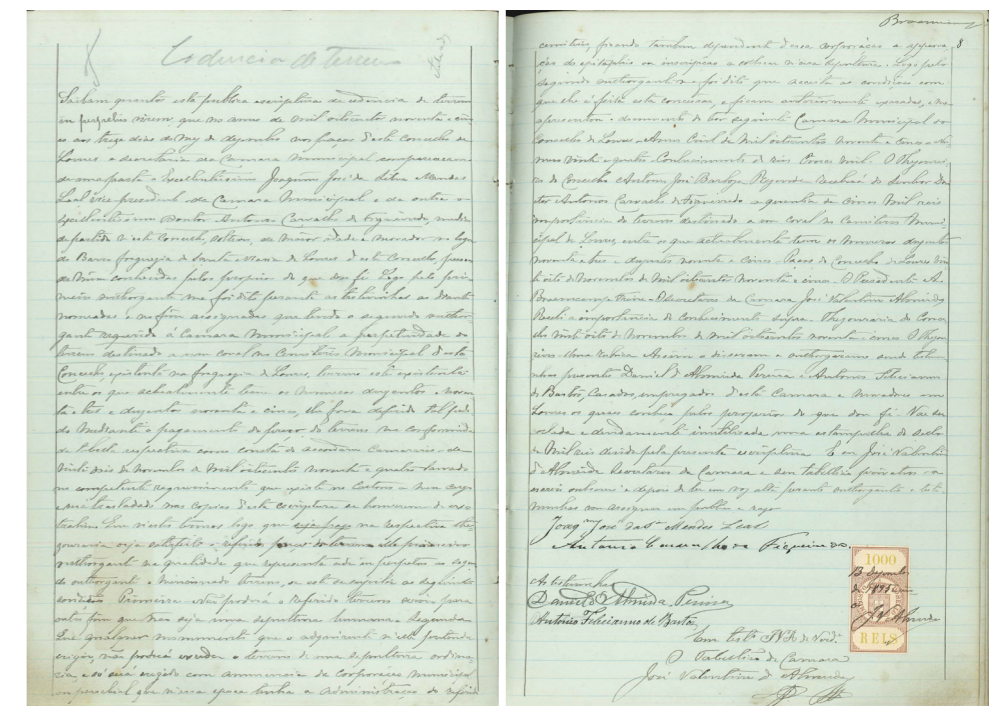 Cedencia de terreno
Saibam quantos esta publica escriptura de cedencia de terreno
em perpetuo virem que no anno de mil oitocentos noventa e cin-
co aos treze dias do mez de dezembro nos paços d'este concelho de
Loures e secretaria da Camara Municipal compareceram
de uma parte o Excellentissimo Joaquim José da Silva Mendes
Leal Vice presidente da Camara Municipal e de outra o
Excellentissimo Doutor Antonio Carvalho de Figueiredo, medico
de partido n'este Concelho, solteiro, de maior idade e morador no logar
de Barro freguezia de Santa Maria de Loures d'este Concelho, pessoas
de mim conhecidas pelos proprios de que dou fé. Logo pelo pri-
meiro outhorgante me foi dito perante as testemunhas ao diante
nomeadas e no fim assignadas que tendo o segundo outhor-
gante requerido á Camara Municipal a perpetuidade do
terreno destinado a um coval no Cemiterio Municipal d'este
Concelho, existente na freguezia de Loures, terreno este existente
entre os que actualmente teem os numeros duzentos noven-
ta e tres e duzentos noventa e cinco, lhe fora deferido tal pedi-
do mediante o pagamento do preço do terreno na conformida-
de da tabella respectiva como consta do accordam Camarario de
vinte dois de novembro de mil oitocentos noventa e quatro lavrado
no competente requerimento que existe no
trabalho. Que n'estes termos logo que seja pago na respectiva the-
zouraria seja satisfeito o referido preço do terreno elle primeiro
outhorgante na qualidade que representa cede em perpetuo ao segun-
do outhorgante o mencionado terreno, com as seguintes
condições Primeira Não poderá o referido terreno servir para
outro fim que não seja uma sepultura humana. Segunda
Que qualquer monumento que o adquirente n'elle pretenda
erigir, não poderá exceder o terreno de uma sepultura ordina-
ria, e só será erigido com annuencia da corporação municipal
ou parochial que n'essa epoca tenha a administração do referido
8
cemiterio, ficando tambem dependente d'essa corporação a approva-
ção de epitaphios ou inscripções a collocar n'essa sepultura. Logo pelo
segundo outhorgante me foi dito que acceita as condições com
que lhe é feita esta concessão, e ficam anteriormente exaradas, e me
apresentou o documento do teor seguinte Camara Municipal do
Concelho de Loures. Anno Civil de mil oitocentos noventa e cinco. Nu-
mero vinte e quatro. Conhecimento de réis cinco mil. O Thezourei-
ro do Concelho Antonio José Barboza Rezende receberá do Senhor Dou-
tor Antonio Carvalho de Figueiredo a quantia de cinco mil reis
importancia do terreno destinado a um coval do Cemiterio Muni-
cipal de Loures, entre os que actualmente teem os numeros duzentos
noventa e tres e duzentos noventa e cinco. Paços do Concelho de Loures vin-
te oito de Novembro de mil oitocentos noventa e cinco. O Presidente A.
O Secretario da Camara José Valentim Almeida
Recebi a importancia do conhecimento supra. Thezouraria do Conce-
lho vinte oito de Novembro de mil oitocentos noventa e cinco. O Thezou-
reiro Assim o disseram e outhorgaram sendo teste-
munhas presentes Daniel d'Almeida Pereira e Antonio Feliciano
de Bastos, Casados, empregados d'esta Camara e moradores em
Loures os quaes conheço pelos proprios de que dou fé. Vae ser
collada e devidamente inutilisada uma estampilha de sello
de mil reis devida pela presente escriptura. E eu José Valentim
d'Almeida Secretario da Camara e seu tabellião privativo a
escrevi e depois de ler em voz alta perante outhorgantes e teste-
munhas vou assignar em publico e razo
Joaqm José da Sa Mendes Leal
Antonio Carvalho de Figueiredo
As testemunhas
Daniel d'Almeida Pereira
Antonio Feliciano de Bastos
1000
13 Dezembro
de 1895
J V Almeida
REIS
Em testo de verde
O Tabellião da Camara
José Valentim d'Almeida